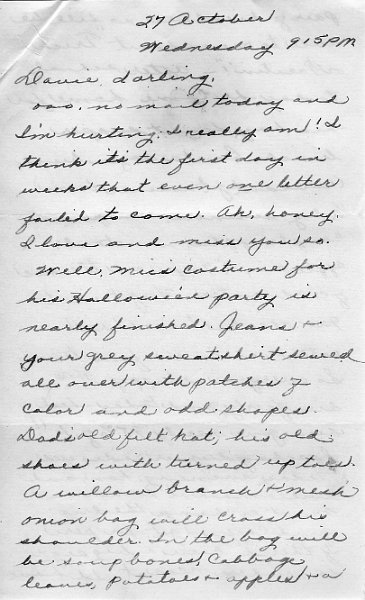 27 October
Wednesday 915PM
Davie, darling,
ooo, no mail today and
I'm hurting; I really am! I
think it's the first day in
weeks that even one letter
failed to come. Ah, honey.
I love and miss you so.
Well, Mic's costume for
his Hallowe'en party is
nearly finished. Jeans +
your grey sweatshirt sewed
all over with patches of
color and odd shapes.
Dad's old felt hat; his old
shoes with turned up toes.
A willow branch + mesh
onion bag will cross his
shoulder. In the bag will
be soup bones, cabbage
leaves, potatoes + apples + a